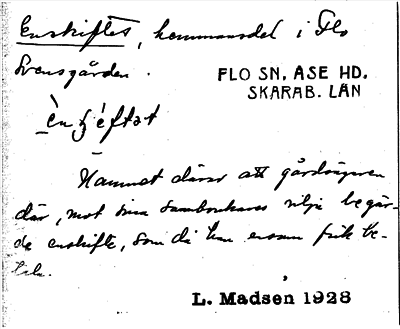 Enskiftes, hemmansdel i Flo
Svensgården.
FLO SN, ASE HD.
SKARAB. LÄN
Namnet därav att gårdsägaren
där, mot sina sambrukares vilja begär-
de enskifte, som då han ensam fick be-
tala.
L. Madsen 1928